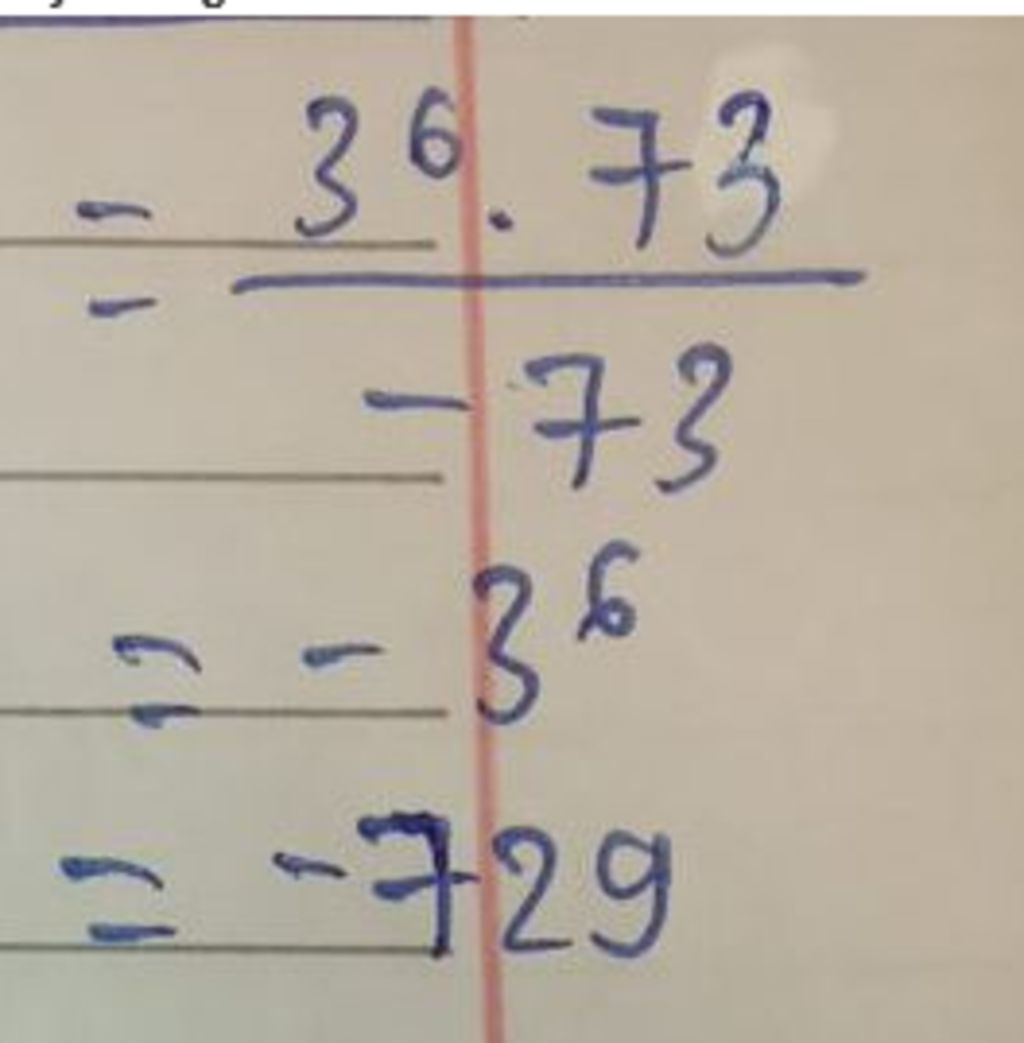 = 3⁶ . 73
- 73
= - 3⁶
= - 729